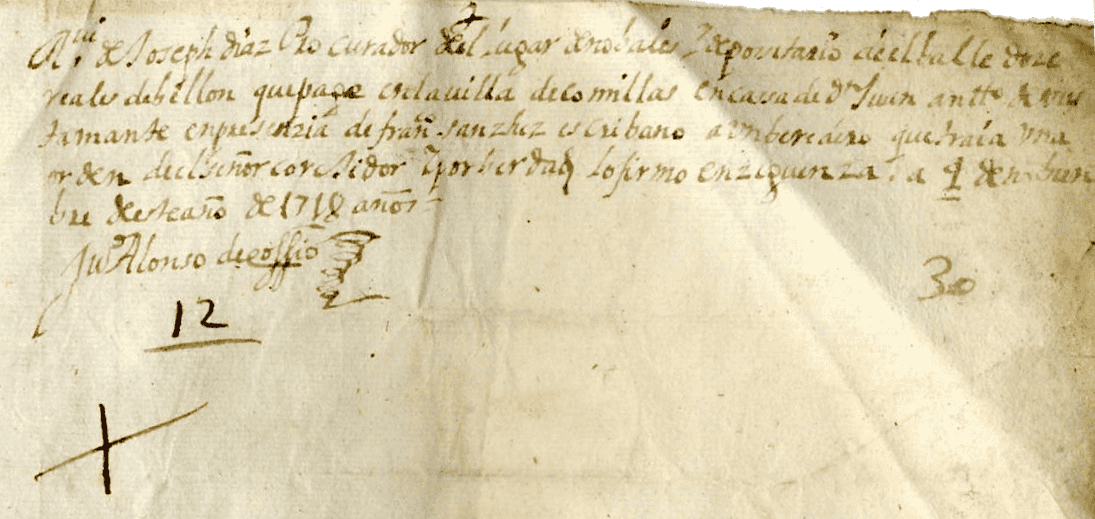 Rⁱ de Joseph diaz Procurador del Lugar de nobales y depositario del balle doze
reales de billon que page en la uilla de comillas en casa de Dn Juan antto de bus
tamante en presenzia de fran sanzhez escribano a un beredero que traia una
orden del señor corexidor y por berdad lo firmo en ziguenza a 9 de nobiem
bre de este año de 1718 años
Juo Alonso de cossio
12
30